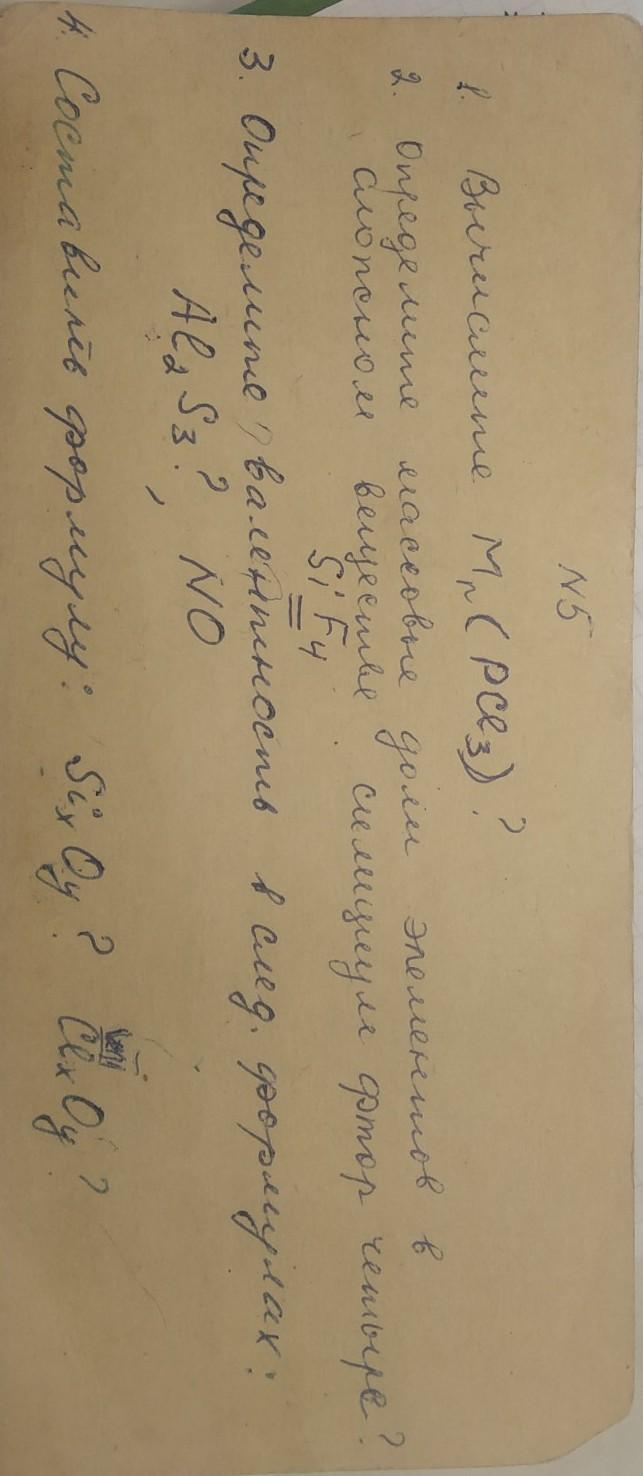 N5
1. Вычислите Mr(PCl3)?
2. Определите массовые доли элементов в
сложном веществе силициум фтор четыре?
SiF4
3. Определите валентность в след. формулах:
Al2S3?, NO
4. Составить формулу: SixOy? ClxOy?